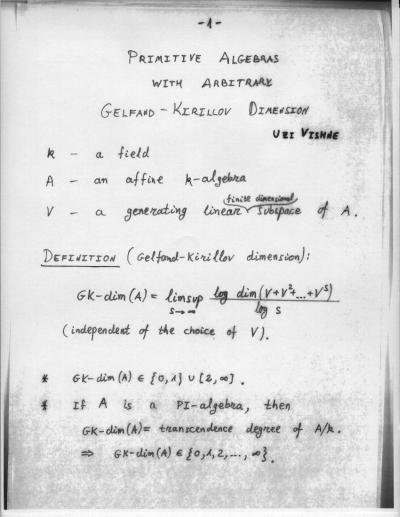 -1-
PRIMITIVE ALGEBRAS
WITH ARBITRARY
GELFAND-KIRILLOV DIMENSION
UZI VISHNE
k - a field
A - an affine k-algebra
finite dimensional
V - a generating linear subspace of A.
DEFINITION (Gelfand-Kirillov dimension):
GK-dim(A) = limsup_{s→∞} log dim(V+V²+...+V^s) / log s
(independent of the choice of V).
* GK-dim(A) ∈ {0,1} ∪ [2,∞].
* If A is a PI-algebra, then
GK-dim(A) = transcendence degree of A/k.
⇒ GK-dim(A) ∈ {0,1,2,...,∞}.